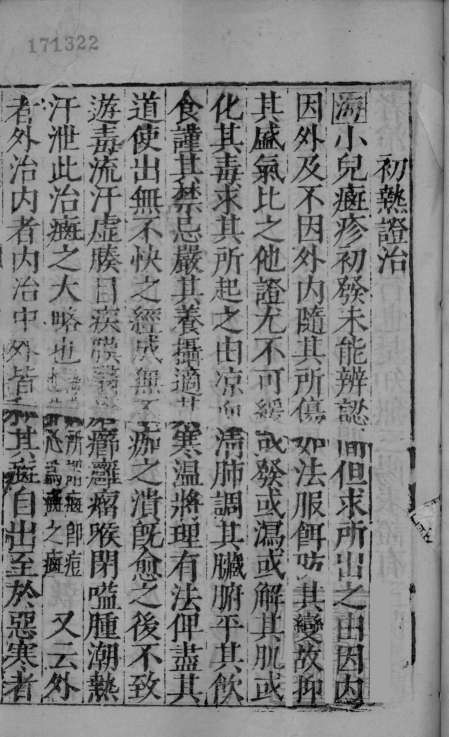 171322
初熱證治
海小兒癍疹初發未能辨認間但求所出之由因内
因外及不因外内隨其所傷如法服餌防其變故抑
其盛氣比之他證尤不可緩或發或瀉或解其肌或
化其毒求其所起之由凉血清肺調其臟腑平其飲
食謹其禁忌嚴其養攝適其寒温將理有法俾盡其
道使出無不快之經成無不痂之潰旣愈之後不致
遊毒流汗虚腠目疾膜翳瘡癤癰瘤喉閉嗌腫潮熱
汗泄此治癍之大略也 所謂癍即痘 之癍 又云外
者外治内者内治中外皆和其癍自出至於惡寒者